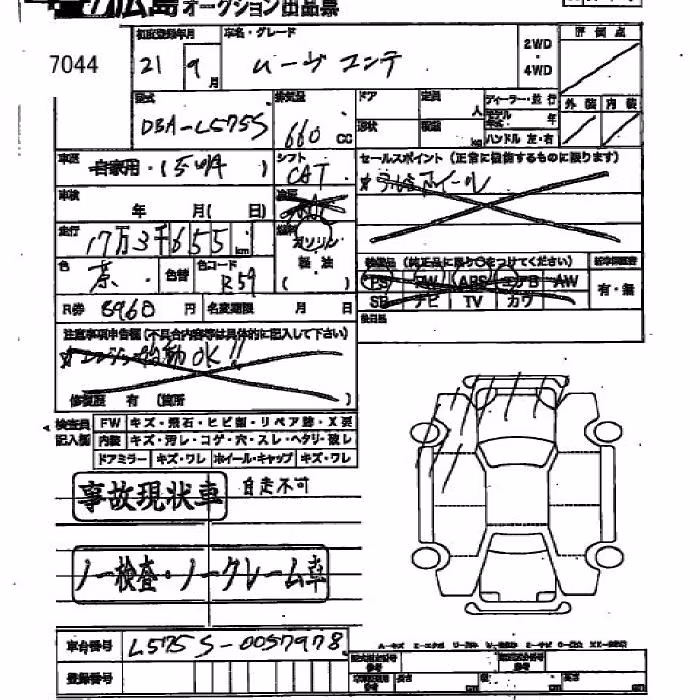 広島オークション出品票
7044
初度登録年月 車名・グレード 2WD・4WD 評価点
21 9月 ムーヴ コンテ
型式 排気量 ドア 定員 人 ディーラー・並行 外装 内装
DBA-L575S 660 CC 形状 積載 kg モデル年式 年 ハンドル 左・右
車歴 自家用・( ) シフト CAT セールスポイント(正常に機能するものに限ります)
車検 年 月( 日) アルミホイール
走行 17万3千655km 燃料 ガソリン 軽油 ( )
装備品(純正品に限り○をつけてください)
PS PW ABS エアB AW
SR ナビ TV カワ 有・無
色 茶 色替 色コード R59
R券 8960 円 名変期限 月 日
注意事項申告欄(不具合内容等は具体的に記入して下さい)
☆エンジン始動OK!!
修復歴 有 (箇所 )
検査員記入欄 FW キズ・飛石・ヒビ割・リペア跡・X要
内装 キズ・汚レ・コゲ・穴・スレ・ヘタリ・破レ
ドアミラー キズ・ワレ ホイール・キャップ キズ・ワレ
事故現状車 自走不可
ノー検査・ノークレーム車
車台番号 L575S-0057978
登録番号